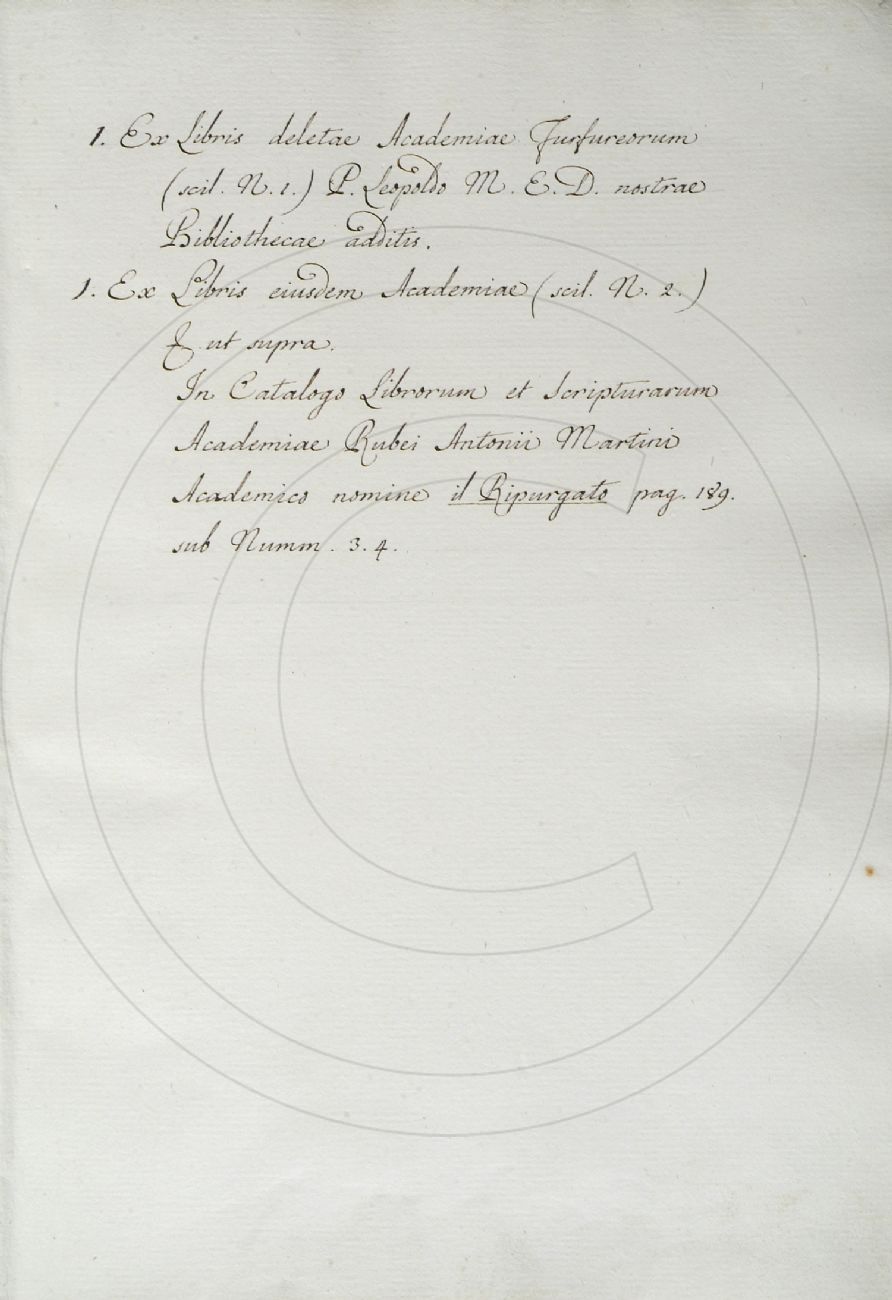 1. Ex Libris deletae Academiae Furfureorum
(scil. N. 1.) P. Leopoldo M. E. D. nostrae
Bibliothecae additis.
1. Ex Libris eiusdem Academiae (scil. N. 2.)
ut supra.
In Catalogo Librorum et Scripturarum
Academiae Rubei Antonii Martini
Academico nomine il Ripurgato pag. 189.
sub Numm. 3. 4.